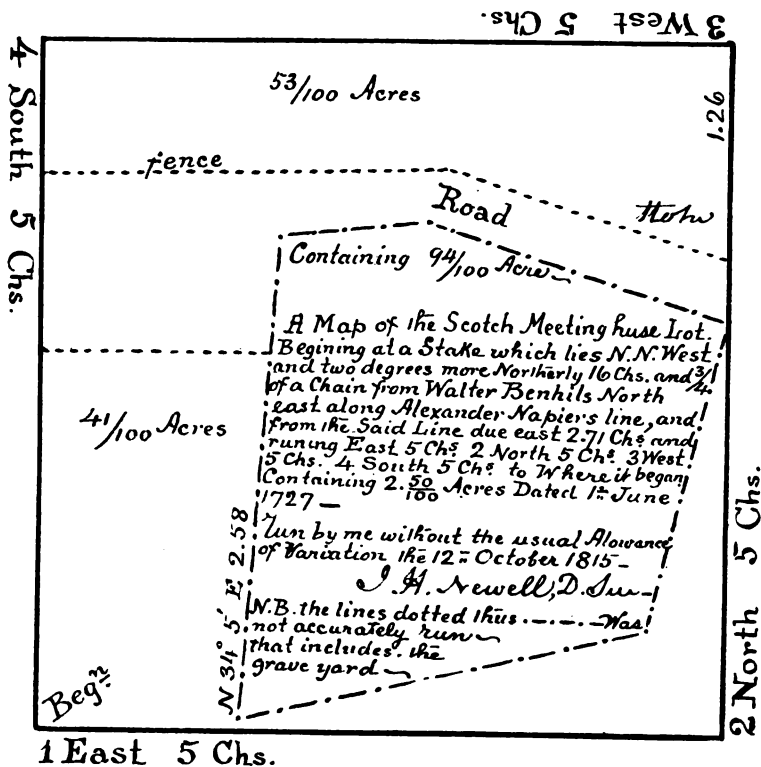 3 West 5 Chs.
4 South 5 Chs.
53/100 Acres
1.26
fence
Road
Containing 94/100 Acre
A Map of the Scotch Meeting huse Lot.
Begining at a Stake which lies N.N. West
and two degrees more Northerly 16 Chs. and 3/4
of a Chain from Walter Benhils North
east along Alexander Napiers line, and
from the Said Line due east 2.71 Chs and
runing East 5 Chs 2 North 5 Chs 3 West
5 Chs. 4 South 5 Chs to Where it began
Containing 2.50/100 Acres Dated 1st June
1727 —
41/100 Acres
Run by me without the usual Alowance
of Variation the 12th October 1815 —
J. H. Newell, D. Sur
N.B. the lines dotted thus .—.—.— Was
not accurately run
that includes. the
grave yard
N 34° 5' E 2.58
Begn
2 North 5 Chs.
1 East 5 Chs.